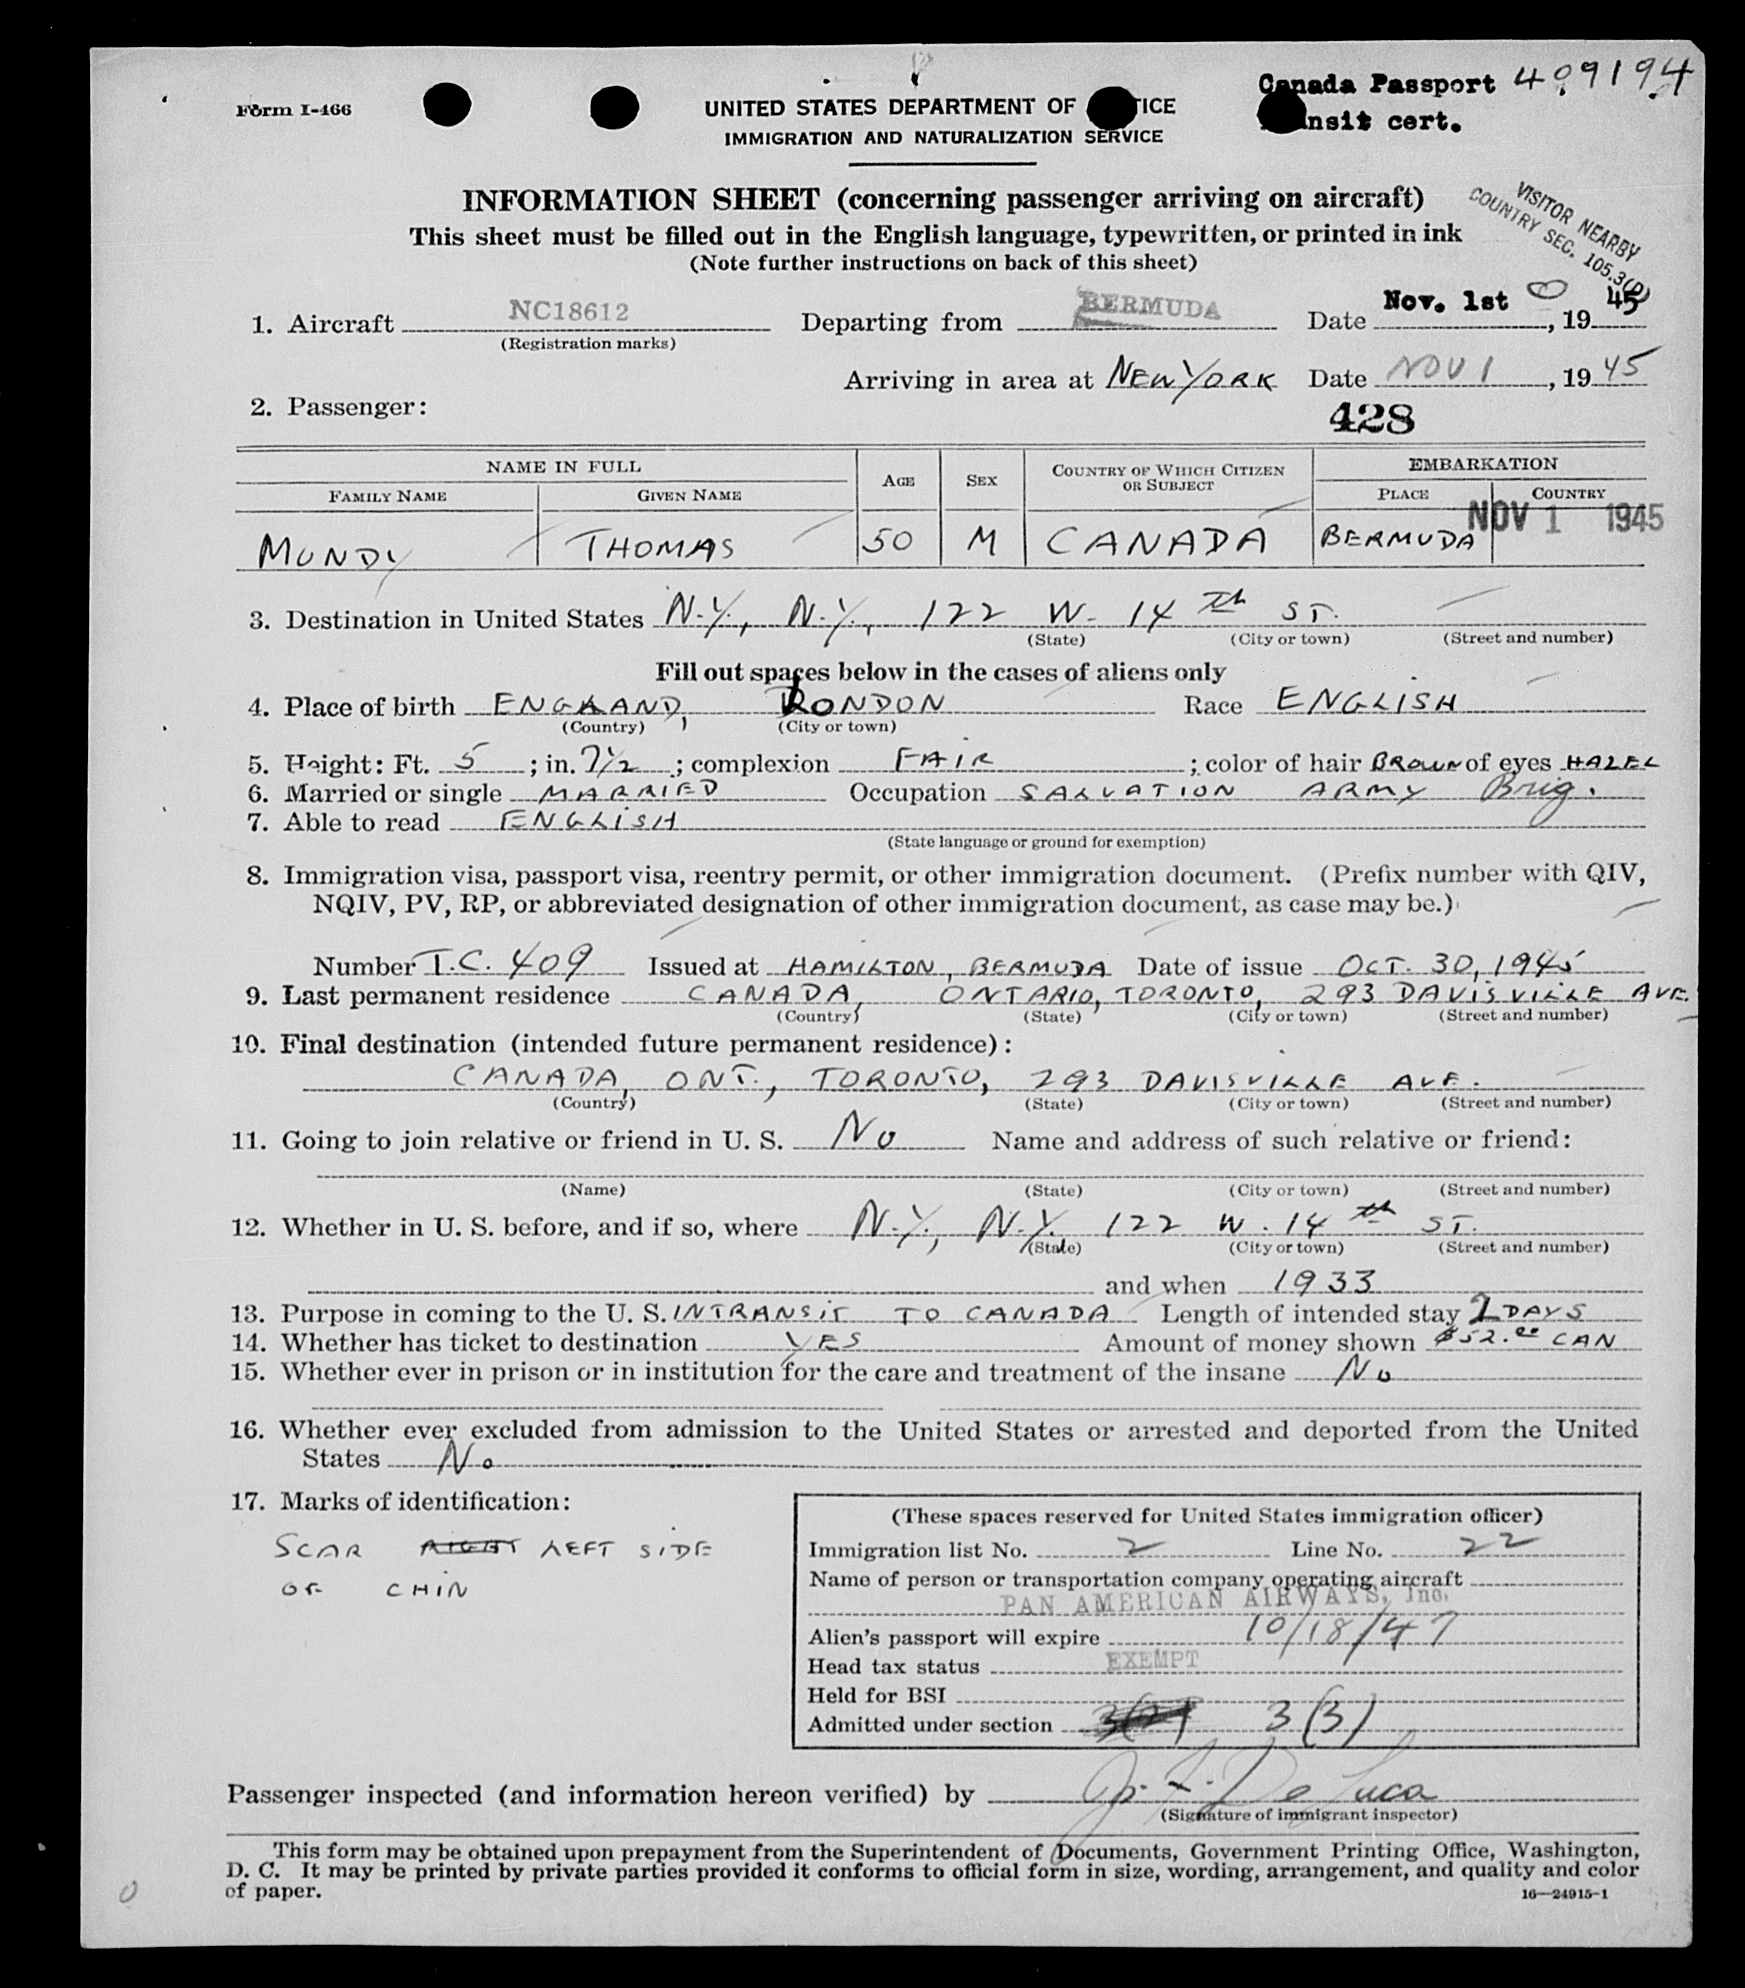 Form I-466
Canada Passport 409194
UNITED STATES DEPARTMENT OF
cert.
IMMIGRATION AND NATURALIZATION SERVICE
INFORMATION SHEET (concerning passenger arriving on aircraft)
VISITOR NEARBY
COUNTRY SEC. 105.3(D)
This sheet must be filled out in the English language, typewritten, or printed in ink
(Note further instructions on back of this sheet)
1. Aircraft NC18612 Departing from BERMUDA Date Nov. 1st, 1945
(Registration marks)
Arriving in area at NEW YORK Date NOV 1, 1945
2. Passenger:
428
NAME IN FULL AGE SEX COUNTRY OF WHICH CITIZEN OR SUBJECT EMBARKATION
FAMILY NAME GIVEN NAME PLACE COUNTRY
NOV 1 1945
MUNDY THOMAS 50 M CANADA BERMUDA
3. Destination in United States N.Y., N.Y., 122 W. 14th ST.
(State) (City or town) (Street and number)
Fill out spaces below in the cases of aliens only
4. Place of birth ENGLAND, LONDON Race ENGLISH
(Country) (City or town)
5. Height: Ft. 5; in. 7½; complexion FAIR; color of hair BROWN of eyes HAZEL
6. Married or single MARRIED Occupation SALVATION ARMY Brig.
7. Able to read ENGLISH
(State language or ground for exemption)
8. Immigration visa, passport visa, reentry permit, or other immigration document. (Prefix number with QIV,
NQIV, PV, RP, or abbreviated designation of other immigration document, as case may be.)
Number T.C. 409 Issued at HAMILTON, BERMUDA Date of issue OCT. 30, 1945
9. Last permanent residence CANADA, ONTARIO, TORONTO, 293 DAVISVILLE AVE.
(Country) (State) (City or town) (Street and number)
10. Final destination (intended future permanent residence):
CANADA, ONT., TORONTO, 293 DAVISVILLE AVE.
(Country) (State) (City or town) (Street and number)
11. Going to join relative or friend in U. S. No Name and address of such relative or friend:
(Name) (State) (City or town) (Street and number)
12. Whether in U. S. before, and if so, where N.Y., N.Y. 122 W. 14th ST.
(State) (City or town) (Street and number)
and when 1933
13. Purpose in coming to the U. S. INTRANSIT TO CANADA Length of intended stay 2 DAYS
14. Whether has ticket to destination YES Amount of money shown $52.00 CAN
15. Whether ever in prison or in institution for the care and treatment of the insane No
16. Whether ever excluded from admission to the United States or arrested and deported from the United
States No
17. Marks of identification:
SCAR RIGHT LEFT SIDE
OF CHIN
(These spaces reserved for United States immigration officer)
Immigration list No. 2 Line No. 22
Name of person or transportation company operating aircraft
PAN AMERICAN AIRWAYS, Inc.
Alien's passport will expire 10/18/47
Head tax status EXEMPT
Held for BSI
Admitted under section 3(3)
Passenger inspected (and information hereon verified) by De Luca
(Signature of immigrant inspector)
This form may be obtained upon prepayment from the Superintendent of Documents, Government Printing Office, Washington,
D. C. It may be printed by private parties provided it conforms to official form in size, wording, arrangement, and quality and color
of paper.
16—24915-1